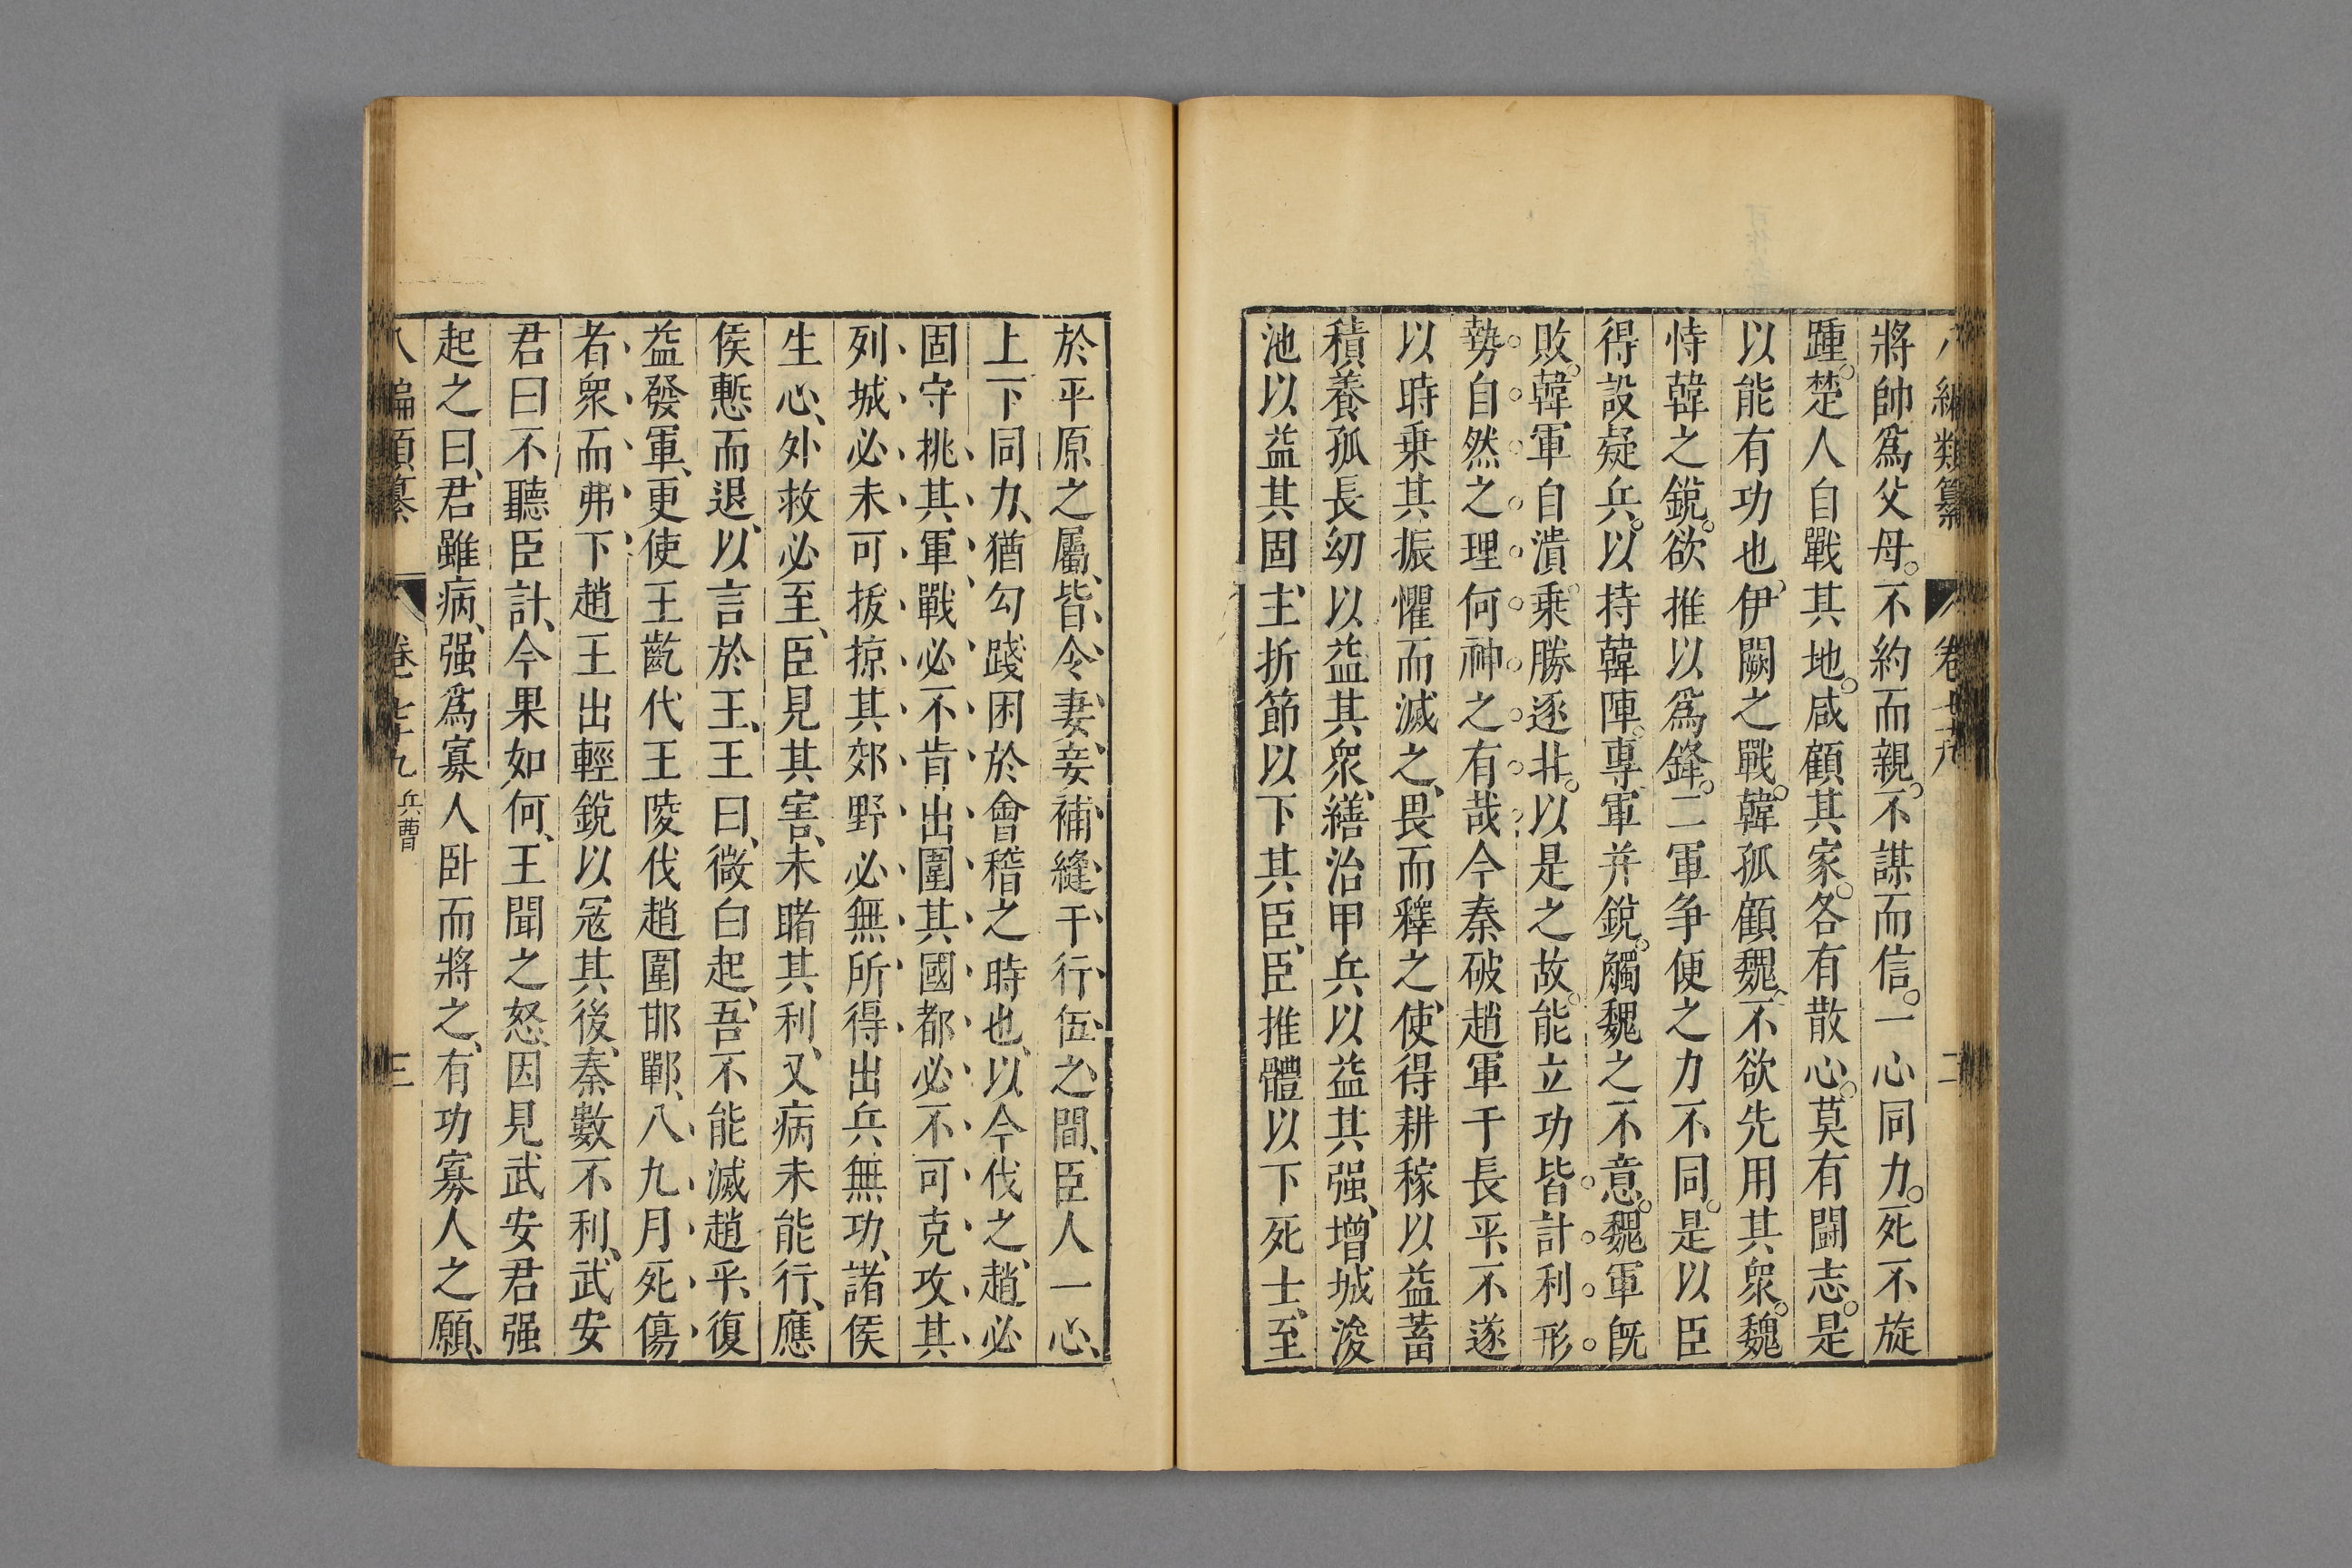 八編類纂 卷七十九 二
將帥爲父母。不約而親。不謀而信。一心同力。死不旋
踵。楚人自戰其地。咸顧其家。各有散心。莫有鬭志。是
以能有功也、伊闕之戰。韓孤顧魏、不欲先用其衆。魏
恃韓之銳。欲推以爲鋒。二軍争便之力不同。是以臣
得設疑兵。以持韓陣。專軍并銳。觸魏之不意。魏軍旣
敗。韓軍自潰。乘勝逐北。以是之故。能立功皆計利形
勢自然之理何神之有哉今秦破趙軍于長平、不遂
以時乗其振懼而滅之、畏而釋之、使得耕稼以益蓄
積養孤長幼以益其衆、繕治甲兵以益其强、增城浚
池以益其固、主折節以下其臣、臣推體以下死士、至
於平原之屬、皆令妻妾補縫于行伍之間、臣人一心、
上下同力、猶勾踐困於會稽之時也、以今伐之、趙必
固守挑其軍戰必不肯出圍其國都必不可克攻其
列城必未可拔掠其郊野必無所得出兵無功、諸侯
生心、外救必至、臣見其害、未睹其利、又病未能行、應
侯慙而退、以言於王、王曰、微白起、吾不能滅趙乎、復
益發軍、更使王齕代王陵伐趙圍邯鄲、八九月死傷
者衆而弗下趙王出輕銳以寇其後、秦數不利、武安
君曰不聽臣計、今果如何、王聞之怒、因見武安君强
起之曰、君雖病、强爲寡人卧而將之、有功寡人之願、
八編類纂 卷七十九 兵曹 三